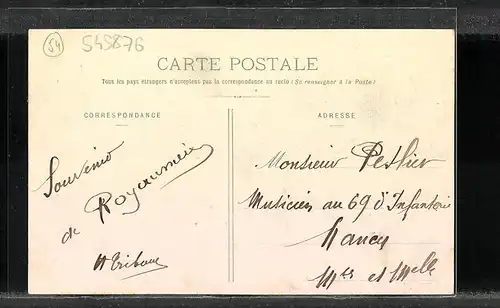 54
545876
CARTE POSTALE
Tous les pays étrangers n'acceptent pas la correspondance au recto (Se renseigner à la Poste)
CORRESPONDANCE
ADRESSE
Souvenir
de Royaumeix
Monsieur
Musicien au 69 d'Infanterie
Nancy
Mthe et Melle